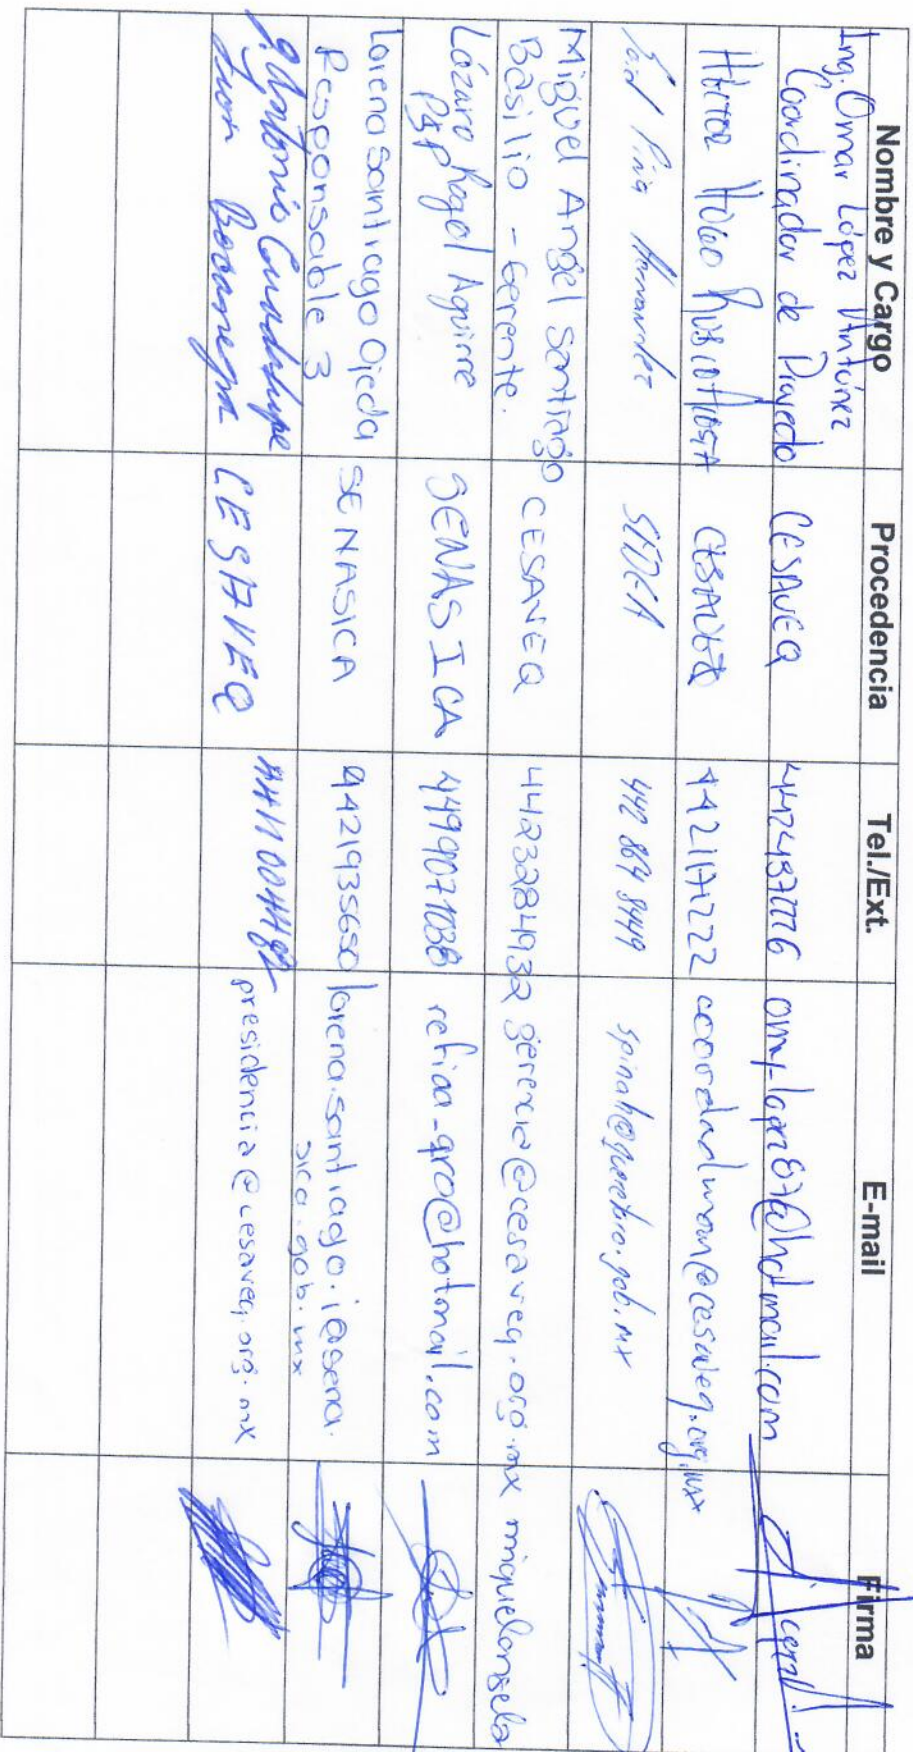 Nombre y Cargo Procedencia Tel./Ext. E-mail Firma
Ing. Omar López Antúnez
Coordinador de Proyecto CESAVEQ 4424987776 @hotmail.com
Héctor Hugo Rubio Acosta CESAVEQ @cesaveq.org.mx
Piña Hernández SEDEA 442 869 8449 spinah@queretaro.gob.mx
Miguel Angel Santiago
Basilio - Gerente. CESAVEQ 4423284932 gerencia@cesaveq.org.mx miguelangelsb
Lázaro Aguirre
SENASICA 4499071038 refiaa-qro@hotmail.com
Lorena Santiago Ojeda
Responsable 3 SENASICA 4421935650 lorena.santiago.i@sena.
sica.gob.mx
P. Antonio Guadalupe
Bocanegra CESAVEQ presidencia@cesaveq.org.mx